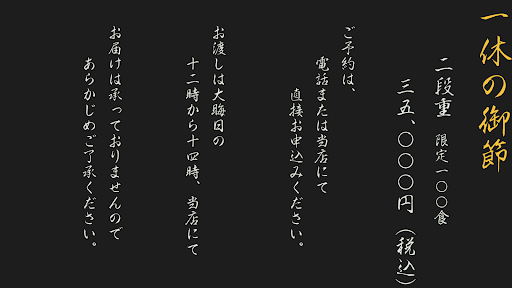 一休の御節
二段重 限定一〇〇食
三五、〇〇〇円（税込）
ご予約は、
電話または当店にて
直接お申込みください。
お渡しは大晦日の
十二時から十四時、当店にて
お届けは承っておりませんので
あらかじめご了承ください。